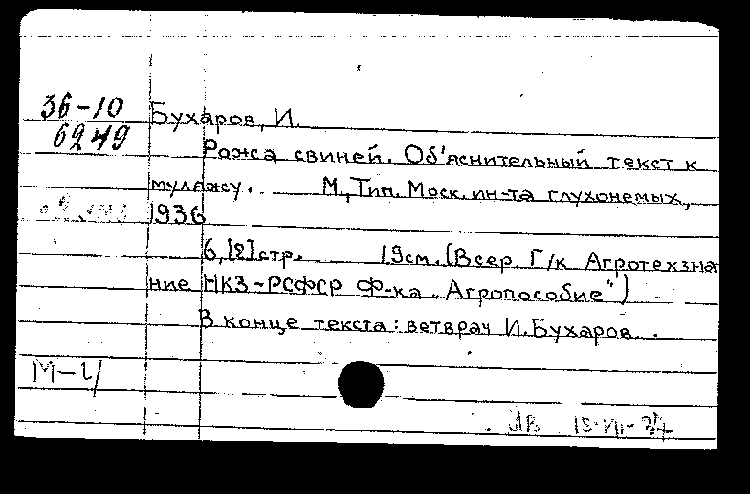 36-10
6249
Бухаров, И.
Рожа свиней. Об'яснительный текст к
муляжу. М., Тип. Моск. ин-та глухонемых,
1936
6, [2] стр. 19см. (Всер. Г/к Агротехзна
ние НКЗ-РСФСР Ф-ка „Агропособие")
В конце текста: ветврач И. Бухаров.